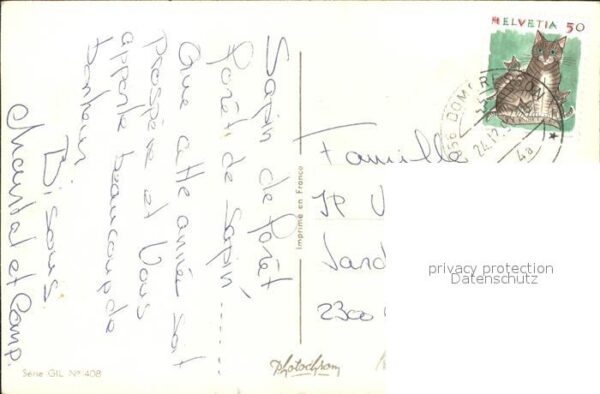 Sapin de forêt
forêt de sapin .......
Que cette année soit
prospère et Vous
apporte beaucoup de
bonheur
Bisous
Chantal et Comp.
Série GIL Nº 408
Imprimé en France
Photochrom
HELVETIA 50
24.12.
4a
Famille
JP
Jard
2300
privacy protection
Datenschutz